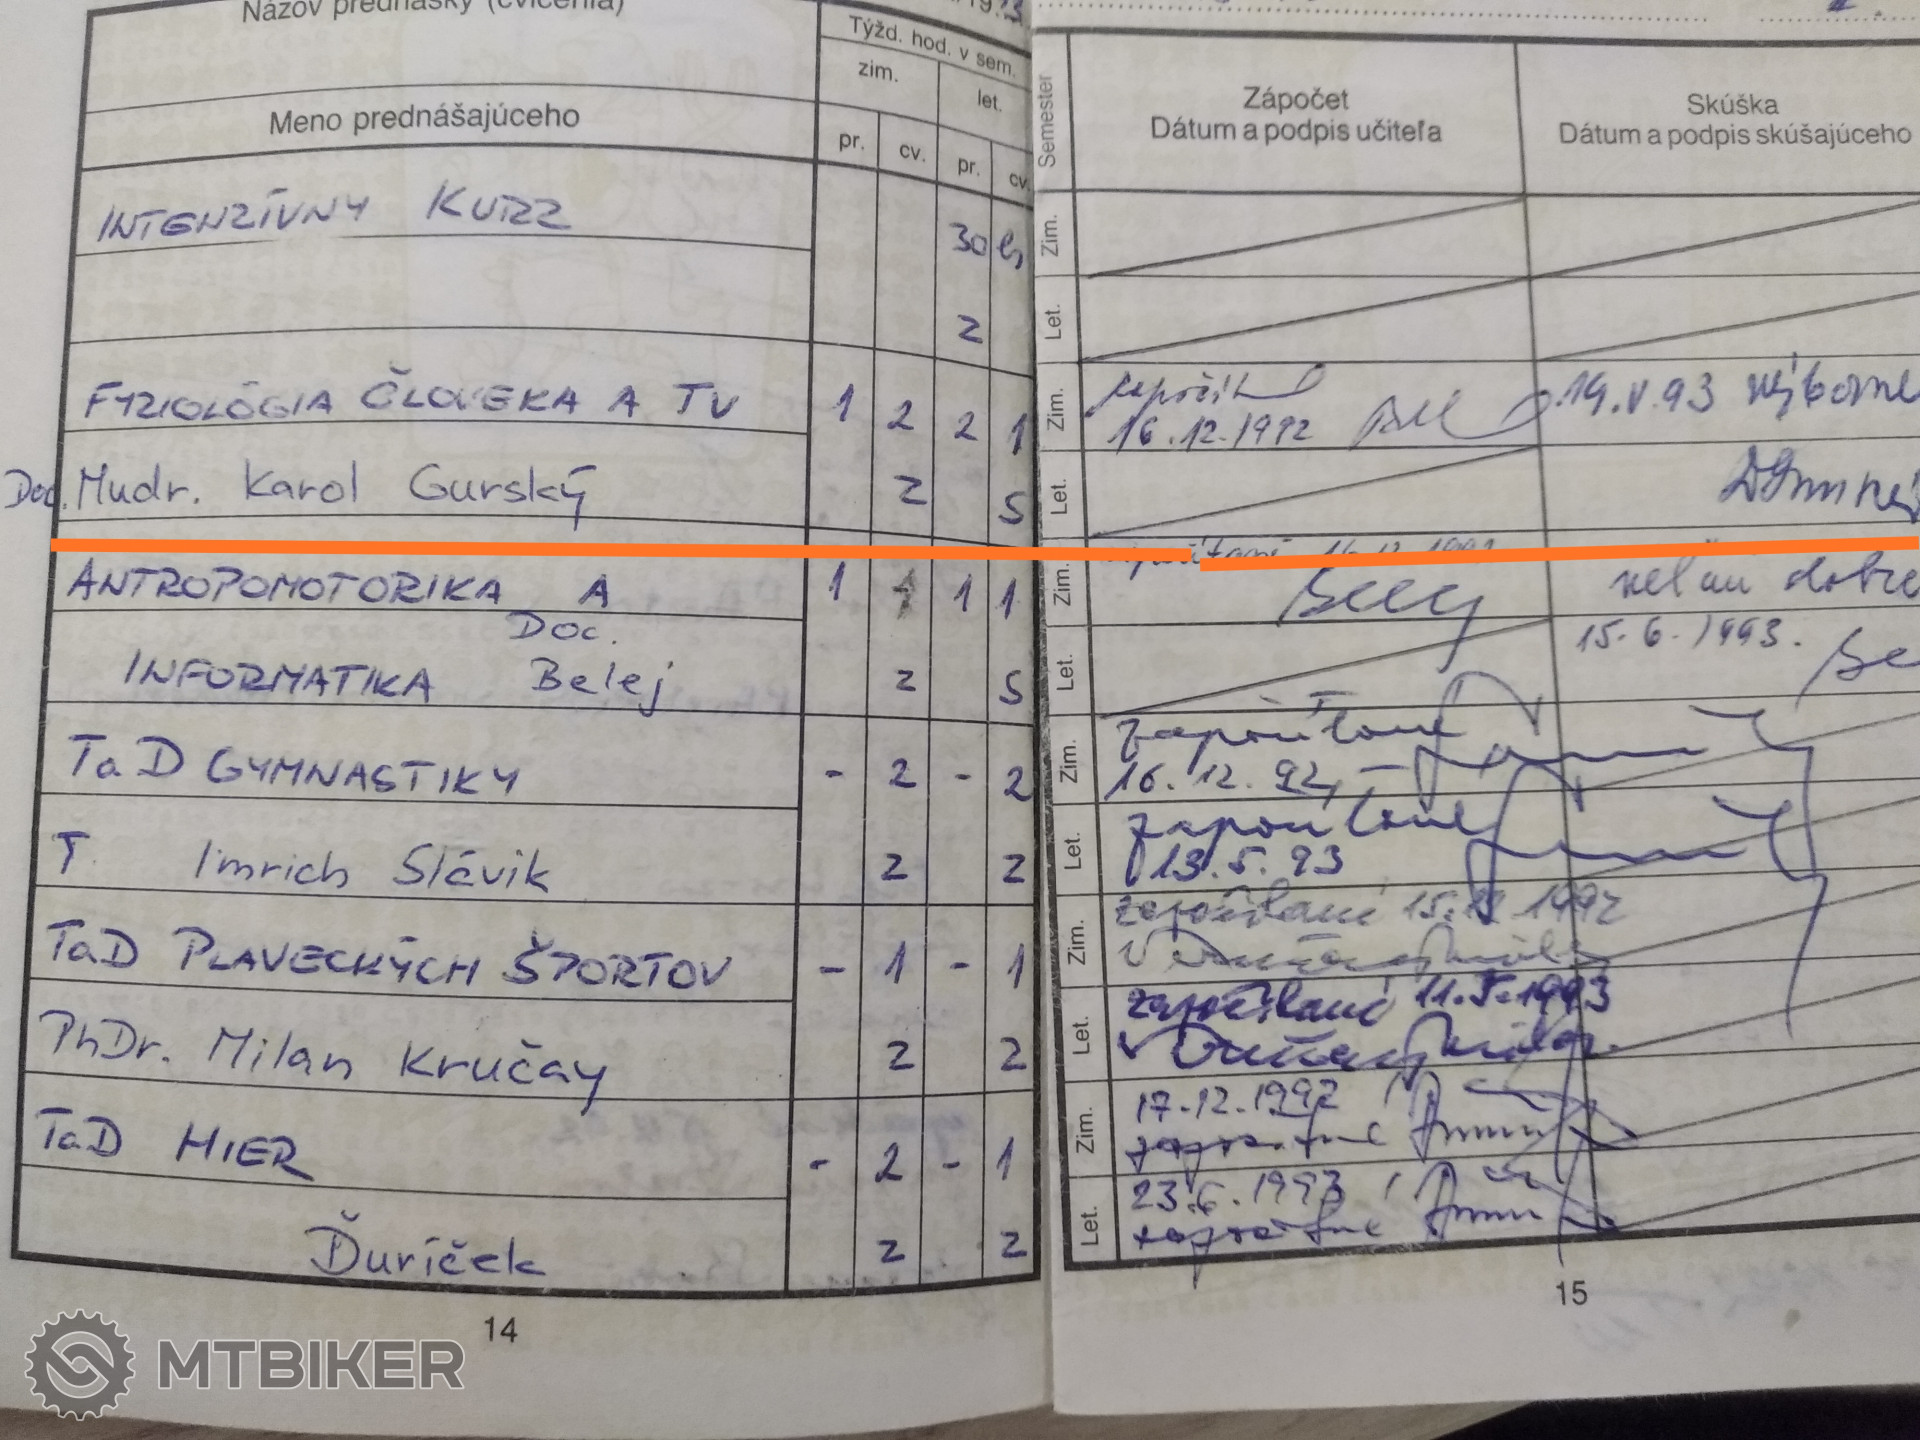 Názov prednášky (cvičenia)
Týžd. hod. v sem.
zim.
let.
Meno prednášajúceho
pr.
cv.
pr.
cv.
Semester
Zápočet
Dátum a podpis učiteľa
Skúška
Dátum a podpis skúšajúceho
INTENZÍVNY KURZ
30
Zim.
2
Let.
FYZIOLÓGIA ČLOVEKA A TV
1 2 2 1
Zim.
16.12.1992
19.V.93 výborne
Doc. Mudr. Karol Gurský
2 5
Let.
ANTROPOMOTORIKA A
1 1 1 1
Zim.
dobre
Doc.
INFORMATIKA Belej
2 5
Let.
15.6.1993.
TaD GYMNASTIKY
- 2 - 2
Zim.
započítané
16.12.92
T Imrich Slávik
2 2
Let.
započítané
13.5.93
TaD PLAVECKÝCH ŠPORTOV
- 1 - 1
Zim.
započítané 15.12.1992
PhDr. Milan Kručay
2 2
Let.
započítané 11.5.1993
TaD HIER
- 2 - 1
Zim.
17.12.1992
Ďuríček
2 2
Let.
23.6.1993
14
15
MTBIKER